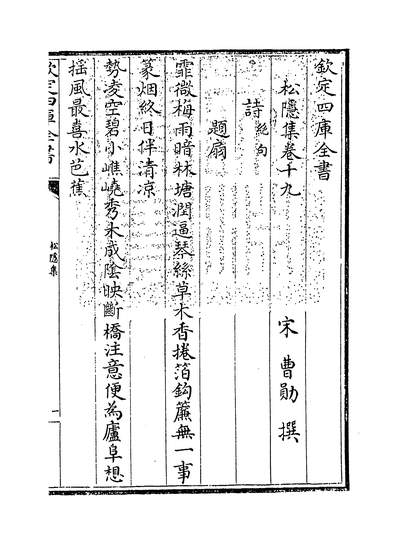 欽定四庫全書
松隱集卷十九
宋 曹勛 撰
詩 絶句
題扇
霏微梅雨暗林塘潤逼琴絲草木香捲箔鈎簾無一事
篆烟終日伴清凉
勢凌空碧小嶕嶢秀木成陰映斷橋注意便為廬阜想
揺風最喜水芭蕉
欽定四庫全書
松隱集
一